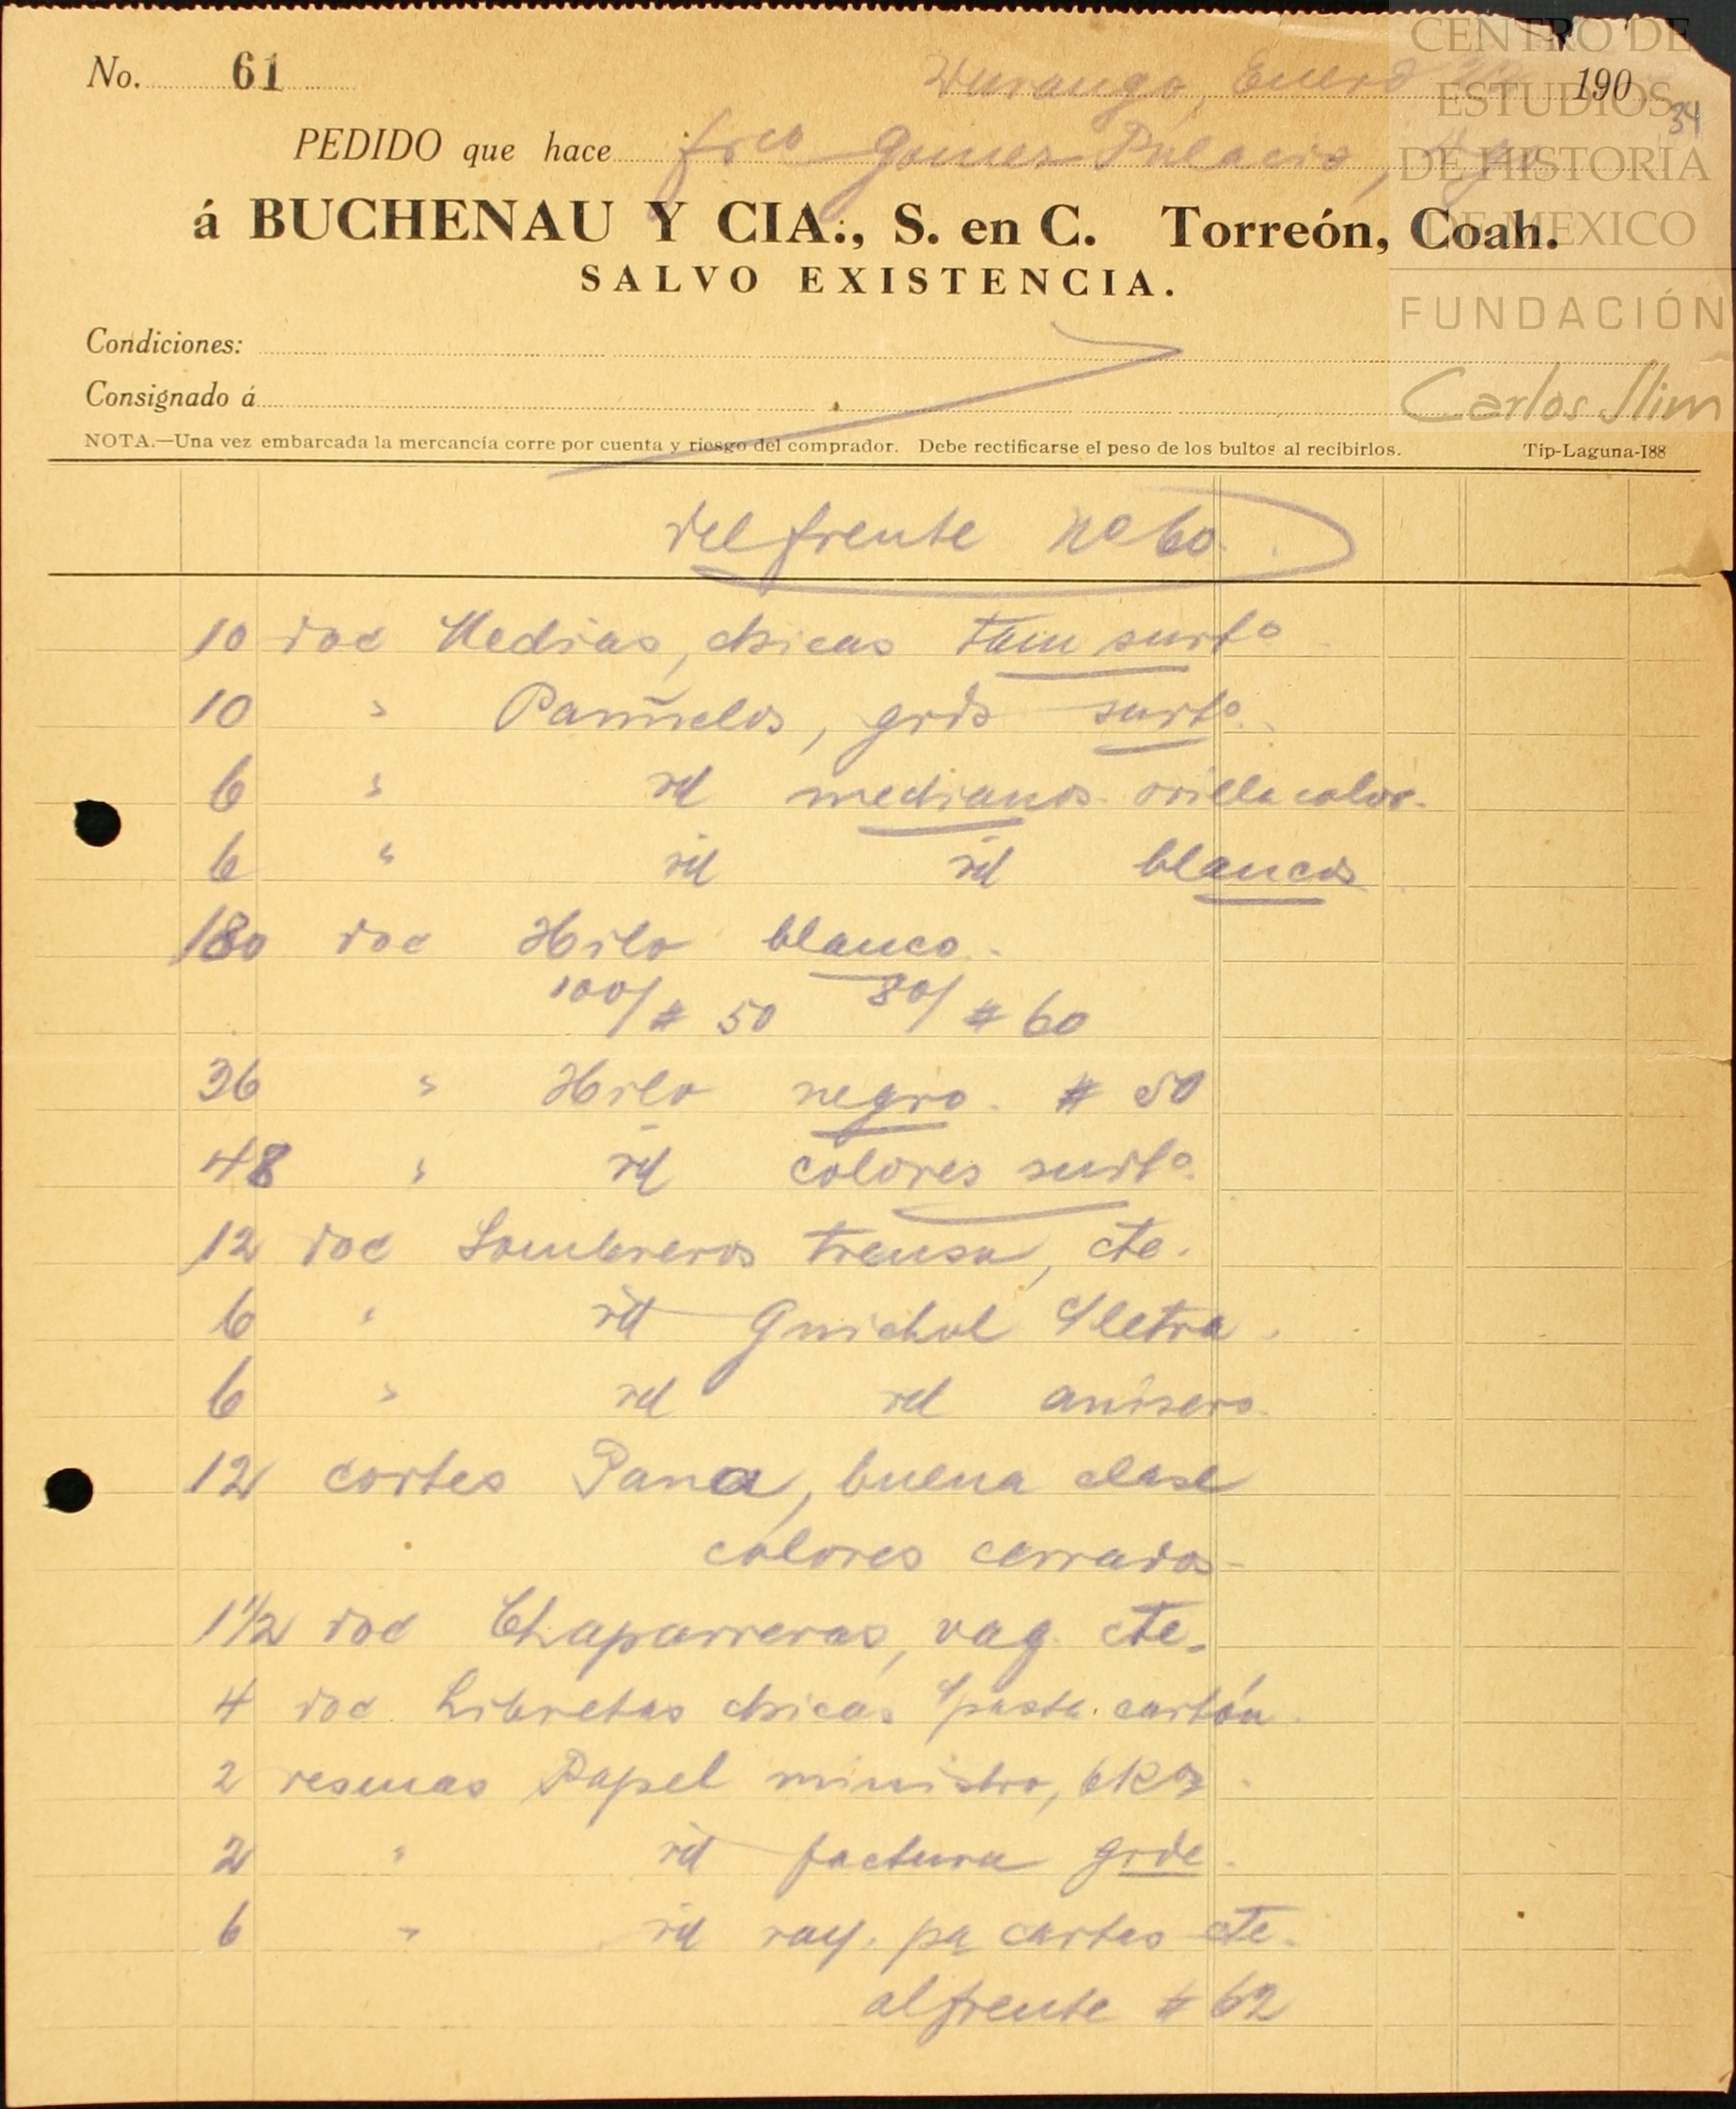 CENTRO DE
ESTUDIOS
DE HISTORIA
DE MEXICO
FUNDACIÓN
Carlos Slim
No. 61
Durango, Enero 190
34
PEDIDO que hace frco Gomez Palacio, Dgo
á BUCHENAU Y CIA., S. en C. Torreón, Coah.
SALVO EXISTENCIA.
Condiciones:
Consignado á
NOTA.—Una vez embarcada la mercancía corre por cuenta y riesgo del comprador. Debe rectificarse el peso de los bultos al recibirlos. Tip-Laguna-188
del frente No 60
10 doc Medias, chicas tam surto
10 " Pañuelos, grds surto.
6 " id medianos orilla color.
6 " id id blancos
180 doc Hilo blanco.
100/ # 50 80/ # 60
36 " Hilo negro. # 50
48 " id colores surto.
12 doc Sombreros trensa, cte.
6 " id Guichol c/letra.
6 " id id anisero.
12 cortes Pana, buena clase
colores cerrados
1 1/2 doc Chaparreras, vaq. cte.
4 doc. Libretas chicas c/pasta. cartón.
2 resmas Papel ministro, 6 Kos.
2 " id factura grde.
6 " id ray. pa cartas cte.
al frente # 62